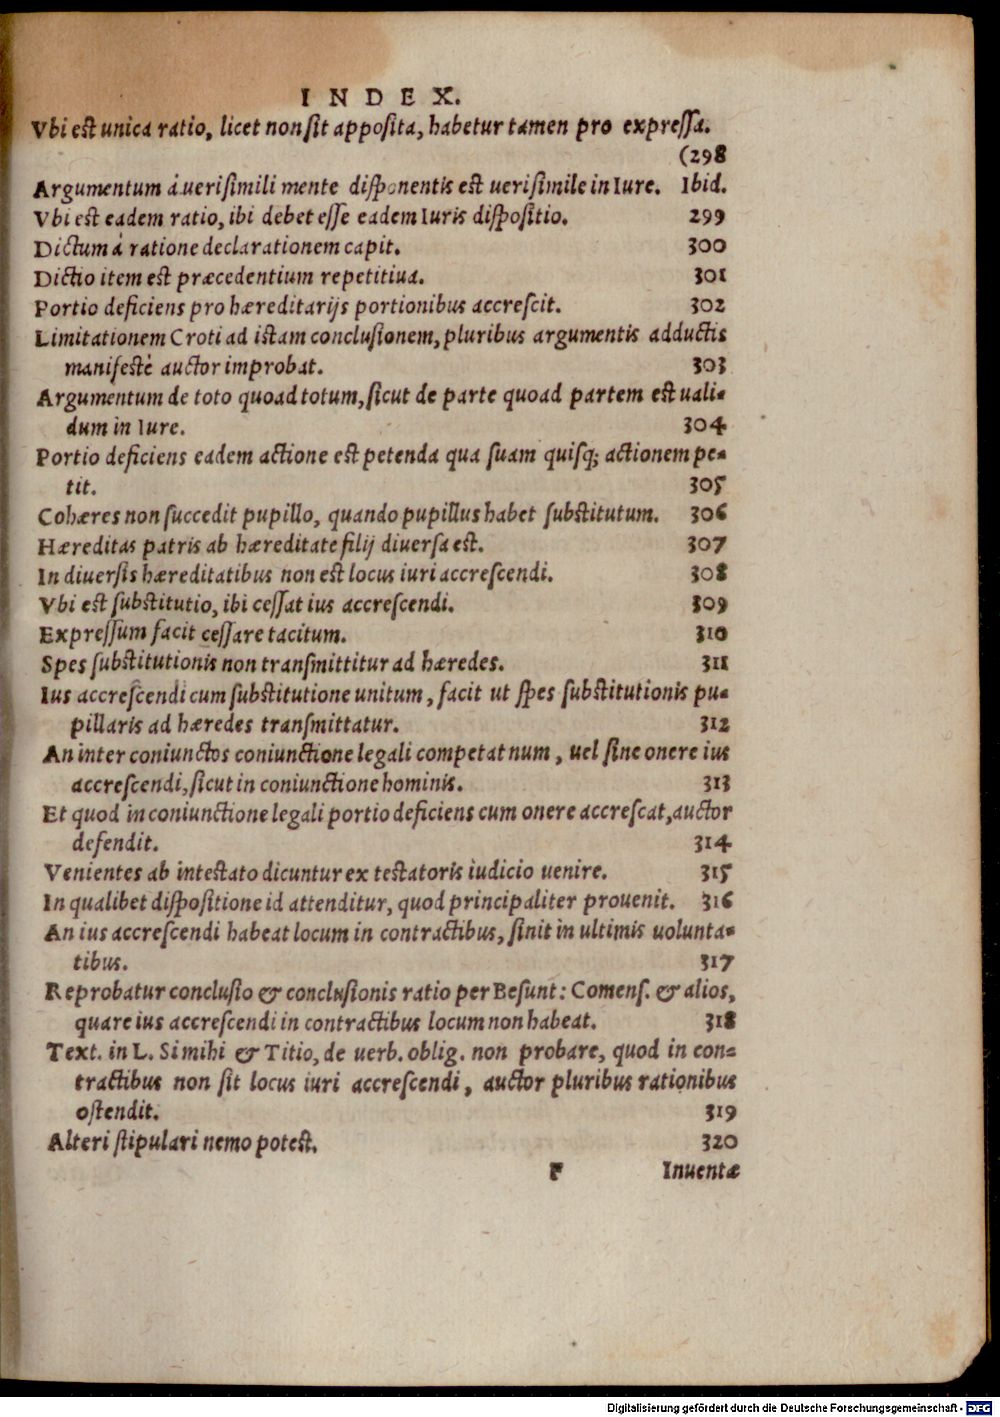 INDEX.
Vbi est unica ratio, licet non sit apposita, habetur tamen pro expressa.
(298
Argumentum à uerisimili mente disponentis est uerisimile in Iure. Ibid.
Vbi est eadem ratio, ibi debet esse eadem Iuris dispositio. 299
Dictum à ratione declarationem capit. 300
Dictio item est præcedentium repetitiua. 301
Portio deficiens pro hæreditarijs portionibus accrescit. 302
Limitationem Croti ad istam conclusionem, pluribus argumentis adductis
manifestè auctor improbat. 303
Argumentum de toto quoad totum, sicut de parte quoad partem est uali-
dum in Iure. 304
Portio deficiens eadem actione est petenda qua suam quisq; actionem pe-
tit. 305
Cohæres non succedit pupillo, quando pupillus habet substitutum. 306
Hæreditas patris ab hæreditate filij diuersa est. 307
In diuersis hæreditatibus non est locus iuri accrescendi. 308
Vbi est substitutio, ibi cessat ius accrescendi. 309
Expressum facit cessare tacitum. 310
Spes substitutionis non transmittitur ad hæredes. 311
Ius accrescendi cum substitutione unitum, facit ut spes substitutionis pu-
pillaris ad hæredes transmittatur. 312
An inter coniunctos coniunctione legali competat num, uel sine onere ius
accrescendi, sicut in coniunctione hominis. 313
Et quod in coniunctione legali portio deficiens cum onere accrescat, auctor
defendit. 314
Venientes ab intestato dicuntur ex testatoris iudicio uenire. 315
In qualibet dispositione id attenditur, quod principaliter prouenit. 316
An ius accrescendi habeat locum in contractibus, sinit in ultimis uolunta-
tibus. 317
Reprobatur conclusio & conclusionis ratio per Besunt: Comens. & alios,
quare ius accrescendi in contractibus locum non habeat. 318
Text. in L. Si mihi & Titio, de uerb. oblig. non probare, quod in con-
tractibus non sit locus iuri accrescendi, auctor pluribus rationibus
ostendit. 319
Alteri stipulari nemo potest. 320
F Inuentæ
Digitalisierung gefördert durch die Deutsche Forschungsgemeinschaft - DFG